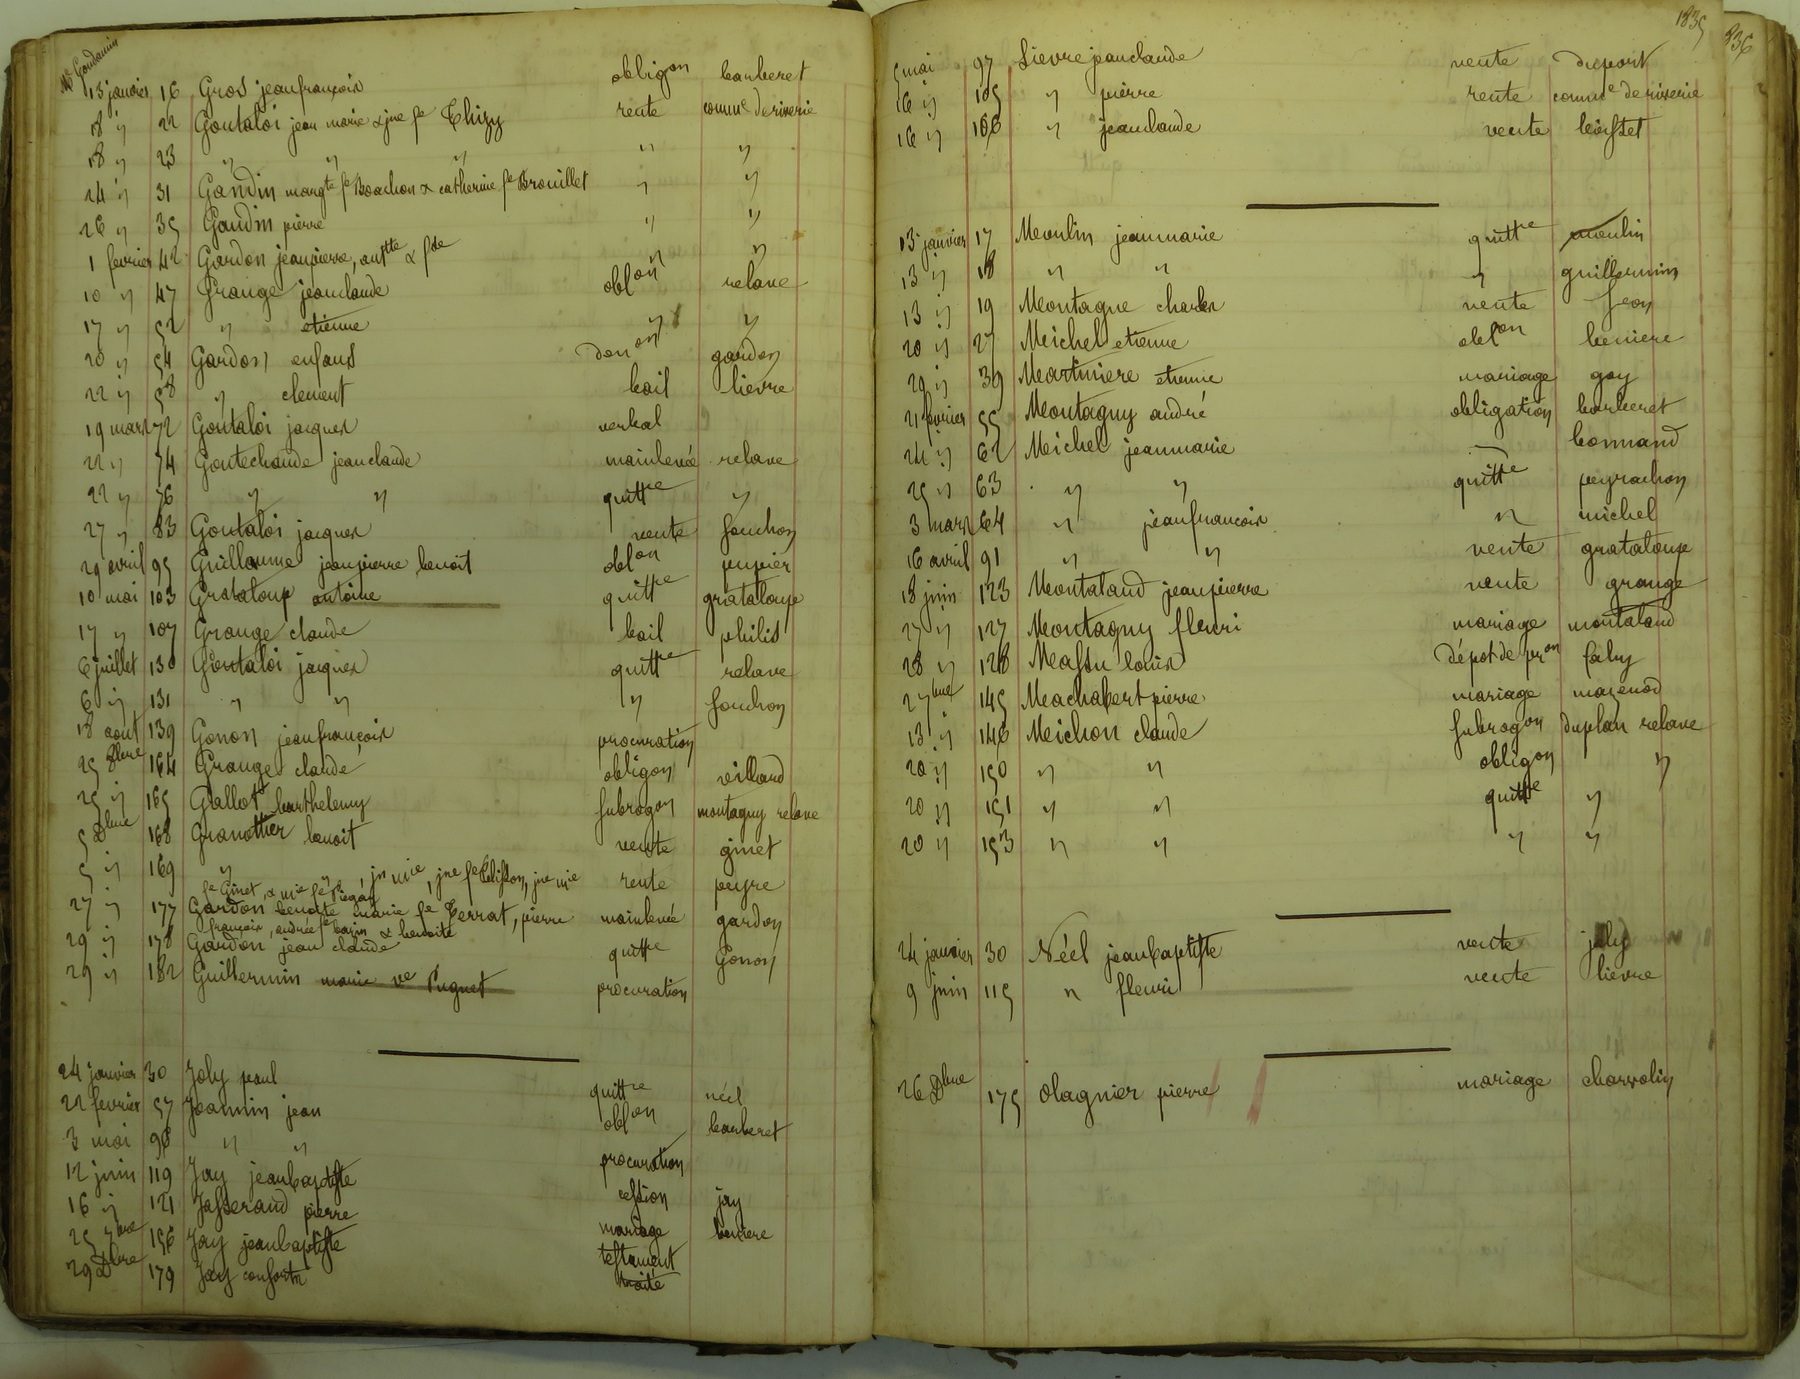 Me Goudamin
13 janvier 16 Gros jeanfrançois obligon barberet
18 " 22 Goutaloi jean marie & jne fe Thizy rente comme de riverie
18 " 23 " " " " "
24 " 31 Gandin margte fe Boachon & catherine fe Brouillet " "
26 " 35 Gaudin pierre " "
1 fevrier 42 Gardon jeanpierre, antte & fde " "
10 " 47 Grange jeanclaude oblon relave
17 " 52 " etienne " "
20 " 54 Gardon enfans donon gardon
22 " 58 " clement bail lievre
19 mars 72 Goutaloi jacques verbal
22 " 74 Goutechaude jeanclaude mainlevée relave
22 " 76 " " quittce "
27 " 83 Goutaloi jacques vente fouchon
29 avril 95 Guillaume jeanpierre benoit oblon pupier
10 mai 103 Grataloup antoine quittce grataloup
17 " 107 Grange claude bail philis
6 juillet 130 Goutaloi jacques quittce relave
6 " 131 " " " fouchon
18 aout 139 Gonon jeanfrançois procuration
25 8bre 164 Grange claude obligon villard
25 " 165 Grallot barthelemy subrogon montagny relave
5 Dbre 168 Granottier benoit vente ginet
5 " 169 " , jn mie, jne fe Pelisson, jne mie rente peyre
fe Ginet, & mie fe
27 " 177 Gardon benoite marie fe Terrat, pierre mainlevée gardon
françois, andrée fe & benoite
29 " 178 Gardon jean claude quittce Gonon
29 " 182 Guillermin marie ve Puguet procuration
24 janvier 30 Joly paul quittce néel
22 fevrier 57 Joannin jean oblon barberet
3 mai 98 " " procuration
12 juin 119 Jay jeanbaptiste cession jay
16 " 121 Jasserand pierre mariage beniere
25 7bre 156 Jay jeanbaptiste testament
29 Dbre 179 Jay traité
1835
836
5 mai 97 Lievre jeanclaude vente duport
16 " 105 " pierre rente comme de riverie
16 " 106 " jeanclaude vente boisset
13 janvier 17 Moulin jeanmarie quittce moulin
13 " 18 " " " guillermin
13 " 19 Montagne charles vente feon
20 " 27 Michel etienne oblon beniere
29 " 39 Martiniere etienne mariage gay
21 fevrier 55 Montagny andré obligation barberet
24 " 62 Michel jeanmarie — bonnand
25 " 63 " " quittce peyrachon
3 mars 64 " jeanfrancois " michel
16 avril 91 " " vente grataloup
18 juin 123 Montaland jeanpierre vente grange
27 " 127 Montagny fleuri mariage montaland
28 " 128 Massu louis dépot de pron faby
2 7bre 145 Machabert pierre mariage mazenod
13 " 146 Michon claude subrogon duplan relave
20 " 150 " " obligon "
20 " 151 " " quittce "
20 " 153 " " " "
24 janvier 30 Néel jeanbaptiste vente joly
9 juin 115 " fleuri vente lievre
26 Dbre 175 Olagnier pierre mariage charvolin